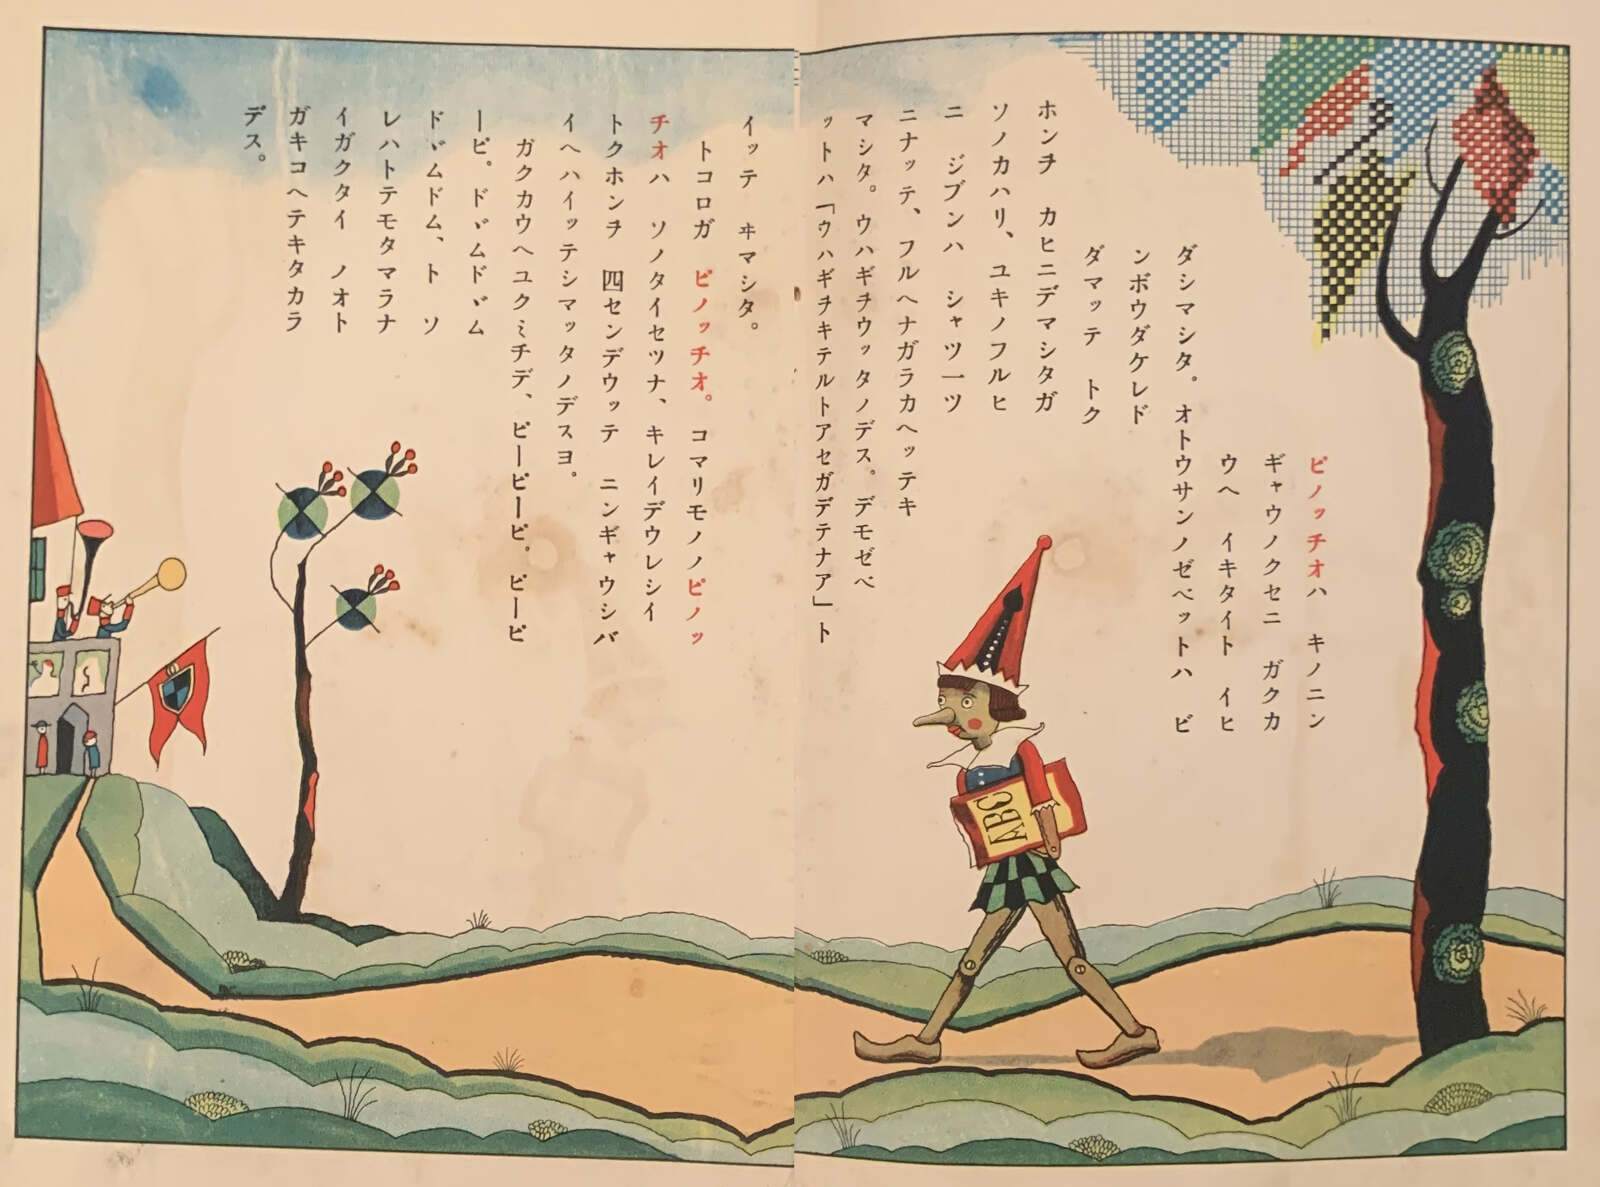 ピノッチオハ キノニン
ギャウノクセニ ガクカ
ウヘ イキタイト イヒ
ダシマシタ。オトウサンノゼペットハ ビ
ンボウダケレド
ダマッテ トク
ホンヲ カヒニデマシタガ
ソノカハリ、ユキノフルヒ
ニ ジブンハ シャツ一ツ
ニナッテ、フルヘナガラカヘッテキ
マシタ。ウハギヲウッタノデス。デモゼペ
ットハ「ウハギヲキテルトアセガデテナア」ト
イッテ ヰマシタ。
トコロガ ピノッチオ。コマリモノノピノッ
チオハ ソノタイセツナ、キレイデウレシイ
トクホンヲ 四センデウッテ ニンギャウシバ
イヘハイッテシマッタノデスヨ。
ガクカウヘユクミチデ、ピーピーピー。ピーピ
ーピ。ドヾムドヾム
ドヾムドム、ト ソ
レハトテモタマラナ
イガクタイ ノオト
ガキコヘテキタカラ
デス。
ABC